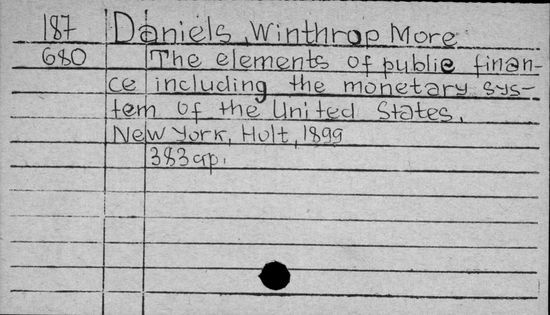 187 Daniels, Winthrop More
680 The elements of public finan-
ce including the monetary sys-
tem of the United States.
New York, Holt, 1899
383 p.